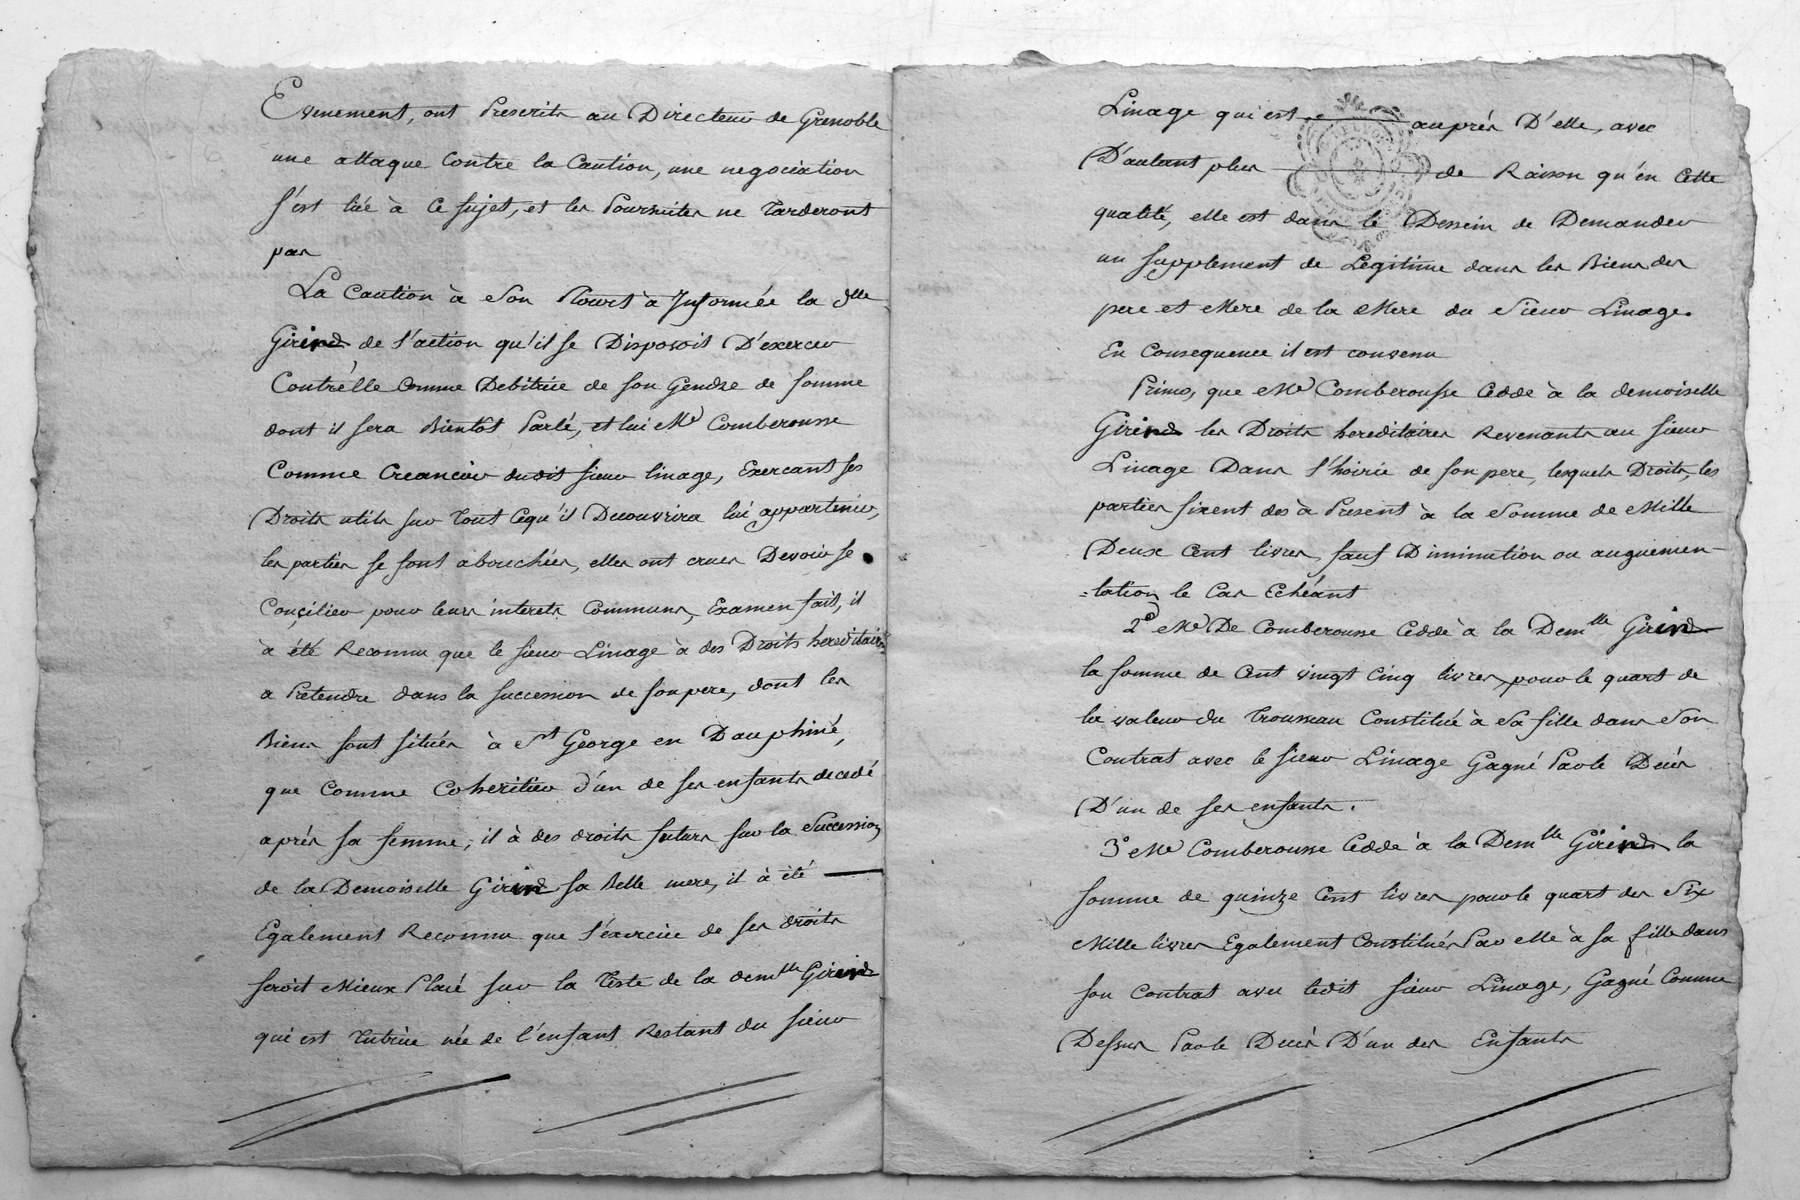 Evenement, ont Prescrits au Directeur de Grenoble
une attaque Contre la Caution, une negociation
s'est liée à ce sujet, et les Poursuites ne Tarderont
pas
La Caution à Son Tour à Informée la dlle
Girind de l'action qu'il se Disposoit D'exercer
Contrélle Comme Debitrice de son Gendre de somme
dont il sera Bientôt Parlé, et lui Me Comberousse
Comme Creancier dudit sieur linage, Exercant ses
Droits utils sur Tout Cequ'il Decouvrira lui appartenir,
les parties se sont abouchées, elles ont crues Devoir se
Conçilier pour leurs interets Communs, Examen fait, il
à été Reconnu que le sieur Linage à des Droits hereditaires
a Prétendre dans la succession de son pere, dont les
Biens sont situés à St George en Dauphiné,
que Comme Coheritier d'un de ses enfants decedé
aprés sa femme, il à des droits futurs sur la Succession
de la Demoiselle Girind sa Belle mere, il à été
Egalement Reconnu que l'éxercice de ses droits
seroit Mieux Placé sur la Teste de la demlle Girind
qui est Tutrice née de l'enfant Restant du sieur
Linage qui est auprés D'elle, avec
D'autant plus de Raison qu'en Cette
qualité, elle est dans le Dessein de Demander
un supplement de Legitime dans les Biens des
pere et Mere de la Mere du Sieur Linage.
En Consequence il est convenu
Primo, que Me Comberousse Cedde à la demoiselle
Girind les Droits hereditaires Revenants au sieur
Linage Dans l'hoirie de son pere, lesquels Droits, les
parties fixent des à Present à la Somme de Mille
Deux Cent livres, sauf Diminution ou augmen-
=tation, le Cas Echéant
2o Me De Comberousse Cedde à la Demlle Girind
la somme de Cent vingt Cinq livres, pour le quart de
la valeur du Trousseau Constitué à Sa fille dans Son
Contrat avec le sieur Linage Gagné Par le Décés
D'un de ses enfants.
3o Me Comberousse Cedde à la Demlle Girind la
somme de quinze Cent livres pour le quart des Six
Mille livres Egalement Constitués Par elle à sa fille dans
son Contrat avec ledit sieur Linage, Gagné Comme
Dessus Par le Decès D'un des Enfants